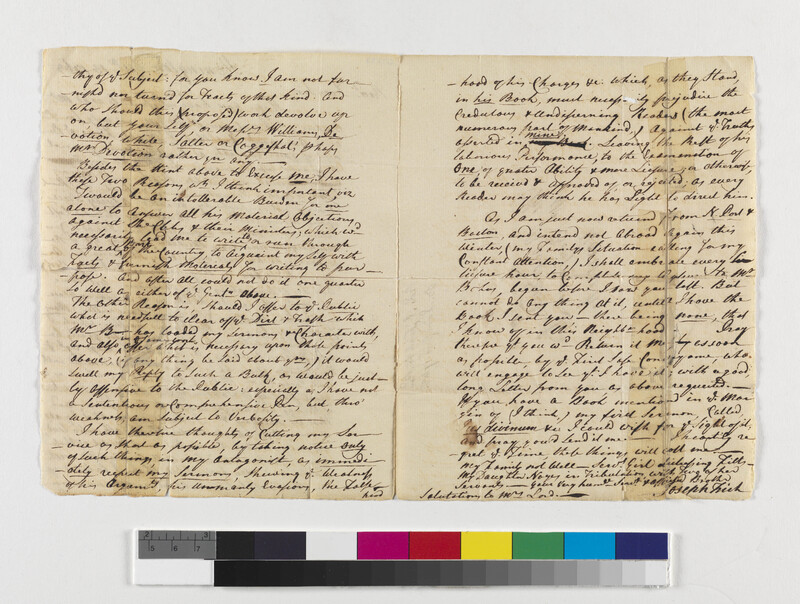 -thy of ye Subject: for you know I am not fur
-nished nor turnd for Tracts of that kind. And
who should this (propos'd) work devolve up
on, but your Self, or Messrs Williams, De
votion, White, Salter or Coggshal; phaps
Mr Devotion rather yn any—
Besides the Hint above to Excuse me, I have
these Two Reasons wh I think important, viz
I would be an intollerable Burden for me
alone to Answer all his Material Objections
against the Chhs & their Ministers, which wd
necessarily me to write or run through
a great of the Country to Acquaint my Self with
Facts & furnish Materials for writing to pur—
pose. And after all could not do it one quarter
so well as either of ye Gentn above.—
The Other Reason is, Should I offer to ye Publick
what is needfull to clear off ye Dirt & Trash which
Mr B— has loaded my Sermons & Character with,
and also, offer what is necessary upon those points
above, (if any thing be said about ym,) it would
swell my Reply to Such a Bulk, as would be just—
ly offensive to the Publick: especially as I have not
a Sententious or Comprehensive Pen, but, thro'
weakness am subject to Verbosity.—
I have therefore thoughts of Cutting my Ser
vice as short as possible, by taking notice only
of such things in my Antagonist as immedi—
ately respect my Sermons, Shewing ye Weakness
of his Argumts, his unmanly Evasions, the False
hood
-hood of his Charges &c. which, as they Stand,
in his Book, must necessarily prejudice the
Credulous & Undiscerning Reader (the most
numerous part of Mankind,) Against ye Truths
asserted in mine. Leaving the Rest of his
laborious Performance, to the Examination of
One, of greater Ability & more Leisure, or otherwise,
to be receivd & approved of or, rejected, as every
Reader may think he has Light to direct him.
As I am just now returnd from N. Port &
Boston, and intend not Abroad again this
Winter (my Family's Situation calling for my
Constant Attention,) I shall embrace every
leisure hour to Complete my Answer to Mr
B— begun before I saw you last. But
cannot do any thing at it, until I have the
Book I sent you— there being none, that
I know of in this Neighbrhood. Pray
therefore yt you wd Return it me by as soon
as possible, by ye First Safe Conveyance, who
will engage to See yt I have it; with a good
long Letter from you as above requested.—
If you have a Book mentiond in ye Mar
gin of (I think,) my first Sermon, (Called
Jus divinum &c I could wish for ye Sight of it,
and pray you'd send it me.— I heartily re
gret ye Time these things, will cost me
My Family not Well— Servt Girl distressing Fitts—
My Daughter Noyes in Tribulation with Two of her
Servants— your very humle Servt & Brothr
Joseph Fish
Salutations to Mrs Lord.—